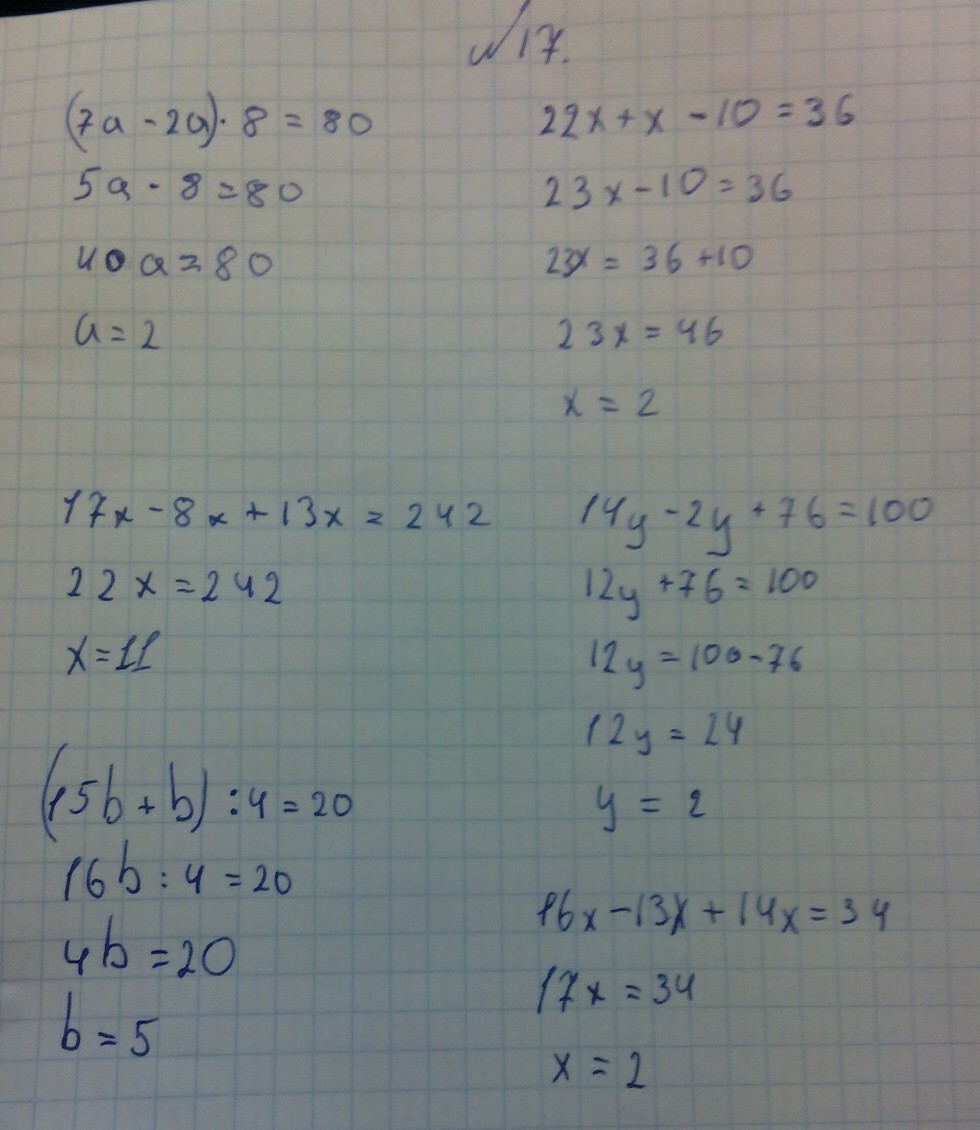 №17.
(7a - 2a) · 8 = 80
5a · 8 = 80
40a = 80
a = 2
22x + x - 10 = 36
23x - 10 = 36
23x = 36 + 10
23x = 46
x = 2
17x - 8x + 13x = 242
22x = 242
x = 11
14y - 2y + 76 = 100
12y + 76 = 100
12y = 100 - 76
12y = 24
y = 2
(15b + b) : 4 = 20
16b : 4 = 20
4b = 20
b = 5
16x - 13x + 14x = 34
17x = 34
x = 2